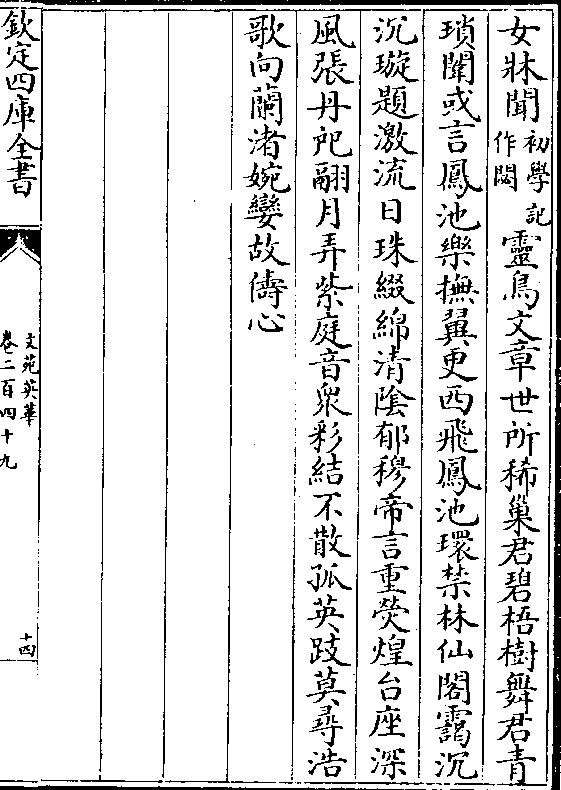 女牀聞初學記作閟靈鳥文章世所稀巢君碧梧樹舞君青
瑣闈或言鳳池樂撫翼更西飛鳳池環禁林仙閣靄沉
沉璇題激流日珠綴綿清陰郁穆帝言重熒煌台座深
風張丹戺翮月弄紫庭音衆彩結不散孤英跂莫尋浩
歌向蘭渚婉孌故儔心
欽定四庫全書
文苑英華
卷二百四十九
十四